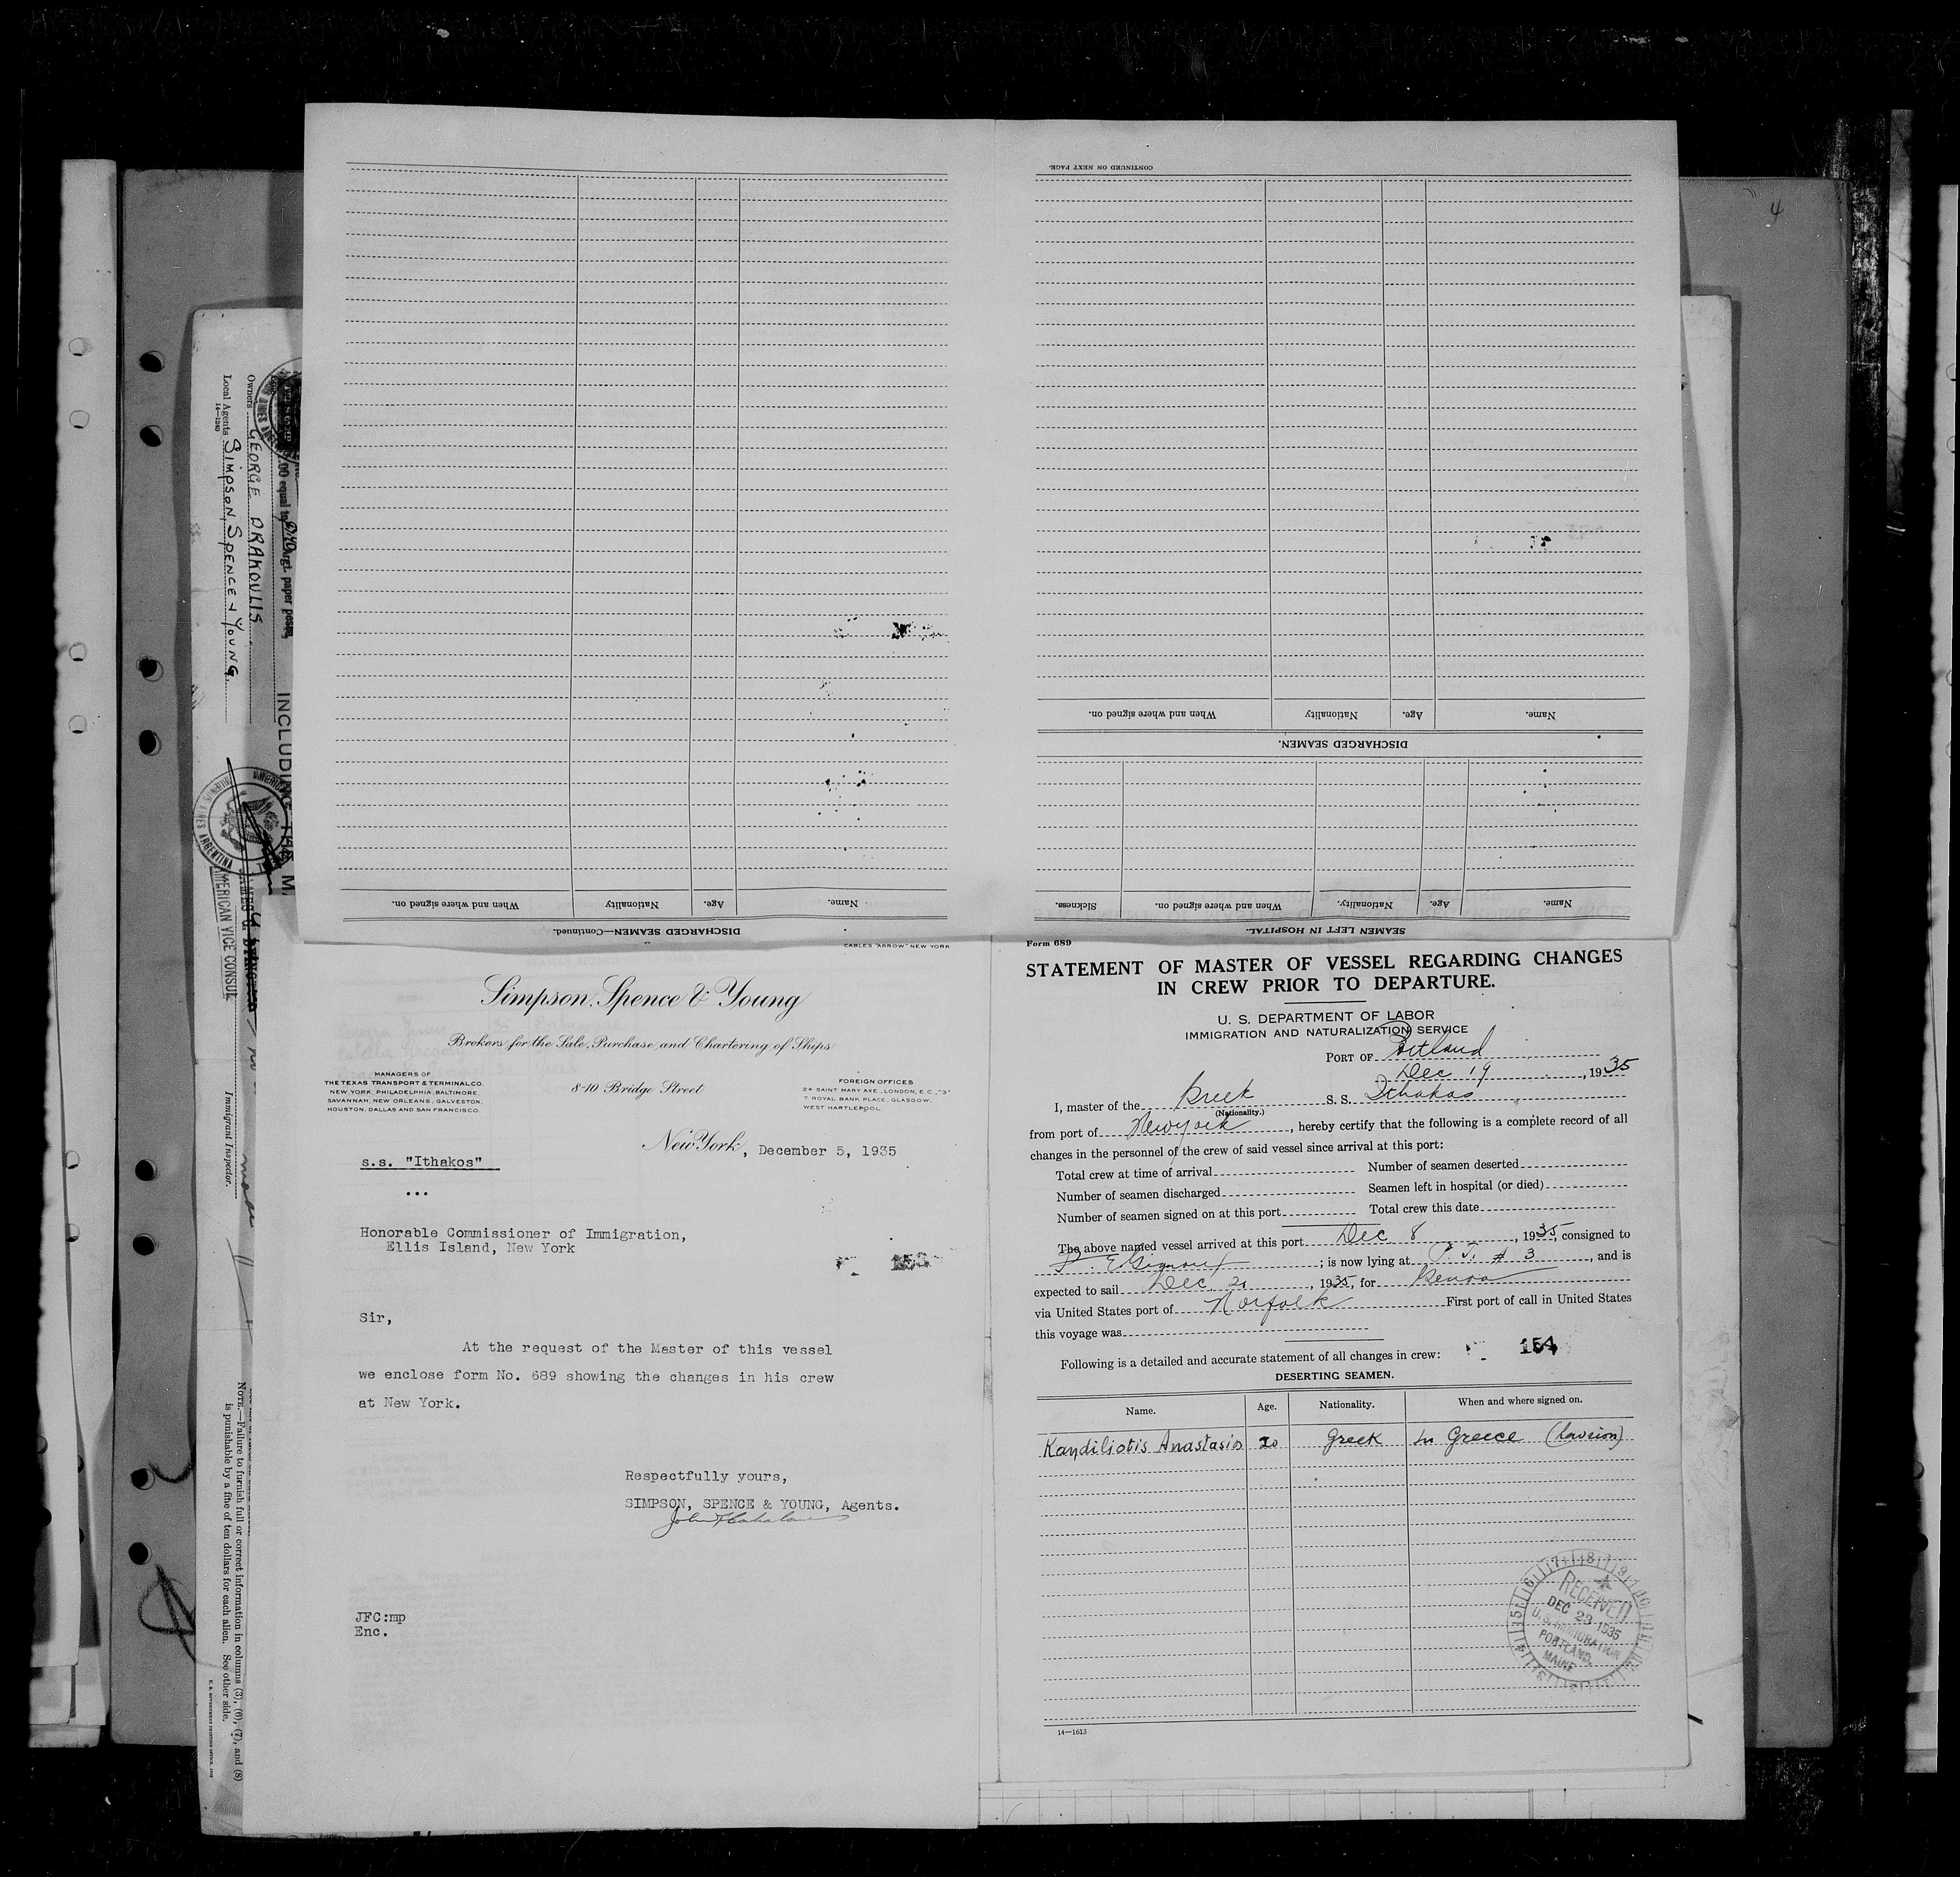 CONTINUED ON NEXT PAGE.
4
When and where signed on.
Nationality
Age.
Name.
DISCHARGED SEAMEN.
When and where signed on.
Nationality
Age.
Name.
DISCHARGED SEAMEN—Continued.
Sickness.
When and where signed on.
Nationality.
Age.
Name.
SEAMEN LEFT IN HOSPITAL.
Owners GEORGE DRAKOULIS
Local Agents SIMPSON SPENCE & YOUNG
14—1240
.00 equal to Argt. paper pesos
INCLUDING THE M
AMERICAN VICE CONSUL
Immigrant Inspector.
NOTE.—Failure to furnish full or correct information in columns (3), (6), (7), and (8)
is punishable by a fine of ten dollars for each alien. See other side.
CABLES "ARROW" NEW YORK
Simpson, Spence & Young
Brokers for the Sale, Purchase and Chartering of Ships
MANAGERS OF
THE TEXAS TRANSPORT & TERMINAL CO.
NEW YORK, PHILADELPHIA, BALTIMORE,
SAVANNAH, NEW ORLEANS, GALVESTON,
HOUSTON, DALLAS AND SAN FRANCISCO.
8-10 Bridge Street
FOREIGN OFFICES
24 SAINT MARY AXE, LONDON, E.C., "3"
7 ROYAL BANK PLACE, GLASGOW,
WEST HARTLEPOOL.
New York, December 5, 1935
s.s. "Ithakos"
...
Honorable Commissioner of Immigration,
Ellis Island, New York
153
Sir,
At the request of the Master of this vessel
we enclose form No. 689 showing the changes in his crew
at New York.
Respectfully yours,
SIMPSON, SPENCE & YOUNG, Agents.
JFC:mp
Enc.
Form 689
STATEMENT OF MASTER OF VESSEL REGARDING CHANGES
IN CREW PRIOR TO DEPARTURE.
U. S. DEPARTMENT OF LABOR
IMMIGRATION AND NATURALIZATION SERVICE
PORT OF Portland
Dec 19, 1935
I, master of the Greek S. S. Ithakos
(Nationality.)
from port of Newyork, hereby certify that the following is a complete record of all
changes in the personnel of the crew of said vessel since arrival at this port:
Total crew at time of arrival Number of seamen deserted
Number of seamen discharged Seamen left in hospital (or died)
Number of seamen signed on at this port Total crew this date
The above named vessel arrived at this port Dec 8, 1935, consigned to
; is now lying at P. T. # 3, and is
expected to sail Dec 20, 1935, for Genoa
via United States port of Norfolk First port of call in United States
this voyage was
Following is a detailed and accurate statement of all changes in crew:
154
DESERTING SEAMEN.
Name. Age. Nationality. When and where signed on.
Kandiliotis Anastasis 20 Greek In Greece
RECEIVED
DEC 23 1935
U. S. IMMIGRATION
PORTLAND,
MAINE
14—1613